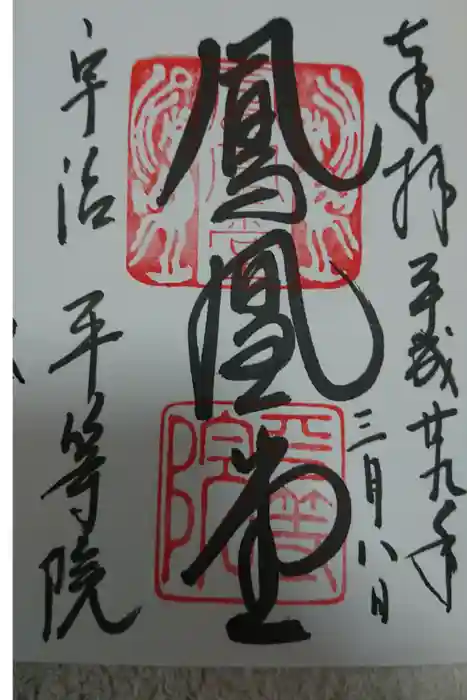 奉拝
平成廿九年
三月八日
鳳凰堂
宇治 平等院
平等院